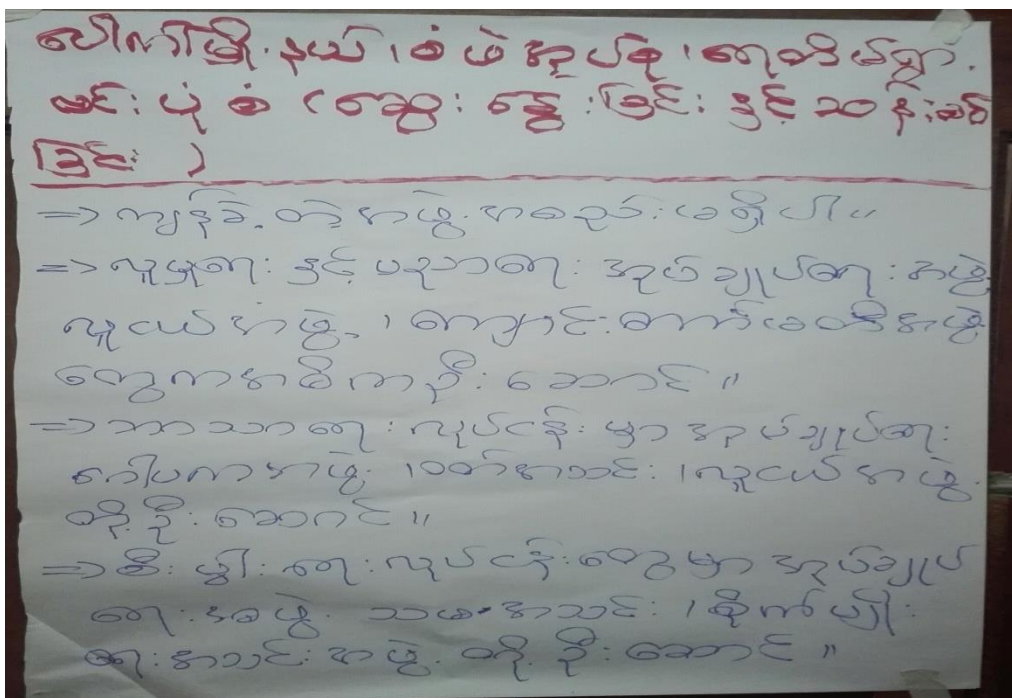 ပေါက်မြို့နယ်၊စံဖဲအုပ်စု၊ရေတိမ်ရွာ.
မင်းပုံစံ (ဆွေးနွေးခြင်းနှင့်သန်းစစ်
ခြင်း)
=> ကျန်ခဲ့တဲ့အဖွဲ့အစည်းမရှိပါ။
=> လူမှုရေးနှင့်ပညာရေး အုပ်ချုပ်ရေးအဖွဲ့
လူငယ်အဖွဲ့၊ကျောင်းကော်မတီအဖွဲ့
တွေကအဓိကဦးဆောင်။
=> ဘာသာရေးလုပ်ငန်းမှာအုပ်ချုပ်ရေး
ဂေါပကအဖွဲ့၊ဝတ်အသင်း၊လူငယ်အဖွဲ့
တို့ဦးဆောင်။
=> စီးပွါးရေးလုပ်ငန်းတွေမှာအုပ်ချုပ်
ရေးအဖွဲ့ သမအသင်း၊စိုက်ပျိုး
ရေးအသင်းအဖွဲ့တို့ဦးဆောင်။